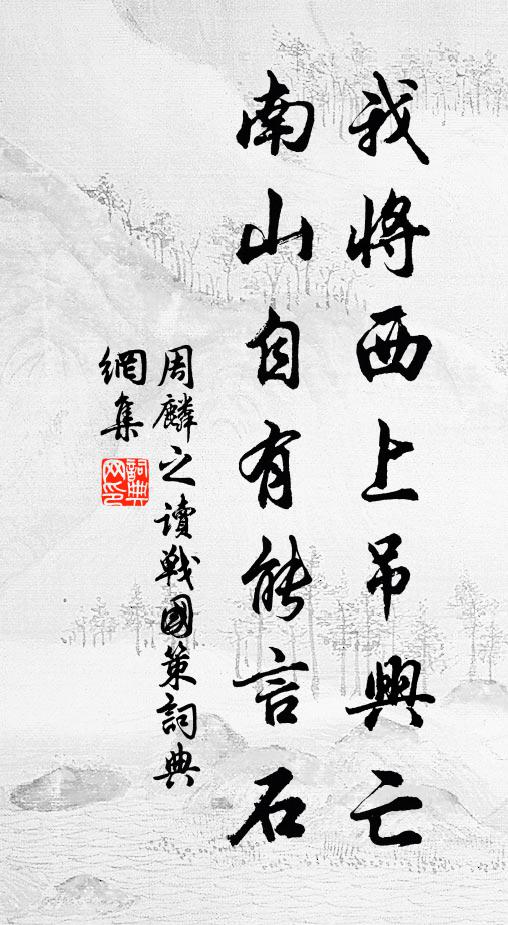 我將西上吊興亡
南山自有能言石
周麟之讀戰國策詞典
網集
詞典
网印